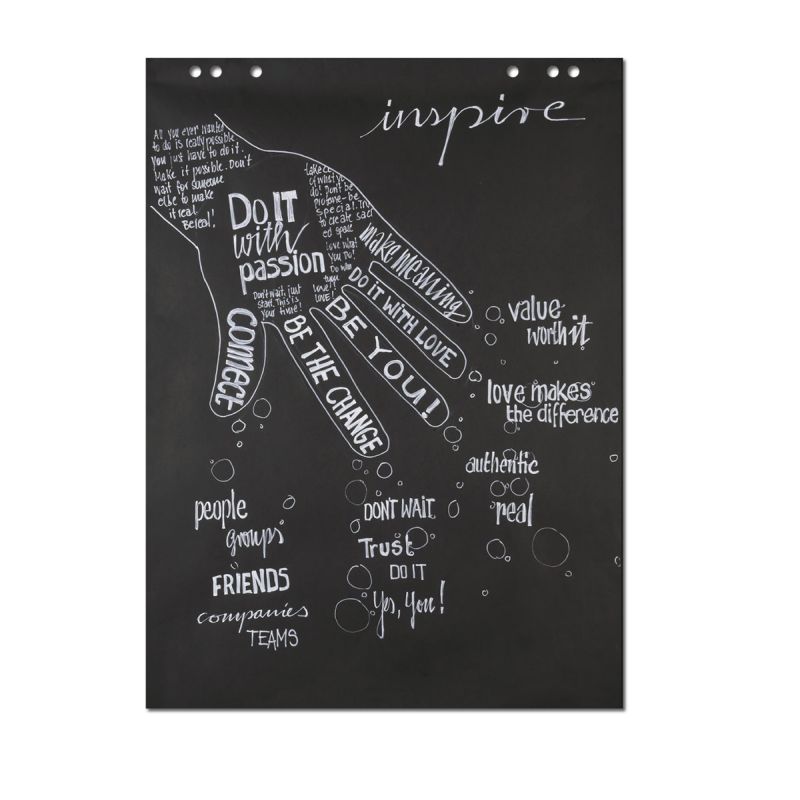 inspire
All you ever wanted
to do is really possible.
You just have to do it.
Make it possible. Don't
wait for someone
else to make
it real.
Be real!
Do IT
with
passion
take care
of what you
do! Don't be
profane-be
special. Try
to create sacr
ed space
love what
you do!
love!
LOVE!
Don't wait, just
start. This is
your time!
make meaning
DO IT WITH LOVE
BE YOU!
BE THE CHANGE
connect
value
worth it
love makes
the difference
authentic
real
people
groups
FRIENDS
companies
TEAMS
DON'T WAIT
Trust
DO IT
Yes, You!